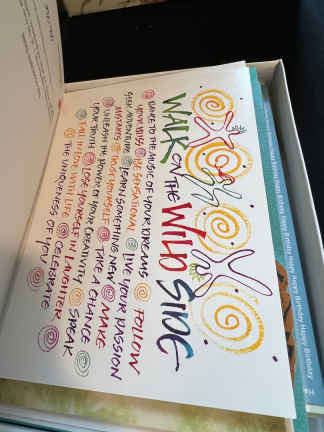 WALK ON THE WILD SIDE
DANCE TO THE MUSIC OF YOUR DREAMS FOLLOW
YOUR BLISS BE SENSATIONAL LIVE YOUR PASSION
SEEK ADVENTURE LEARN SOMETHING NEW MAKE
MISTAKES TRUST YOURSELF TAKE A CHANCE
UNLEASH THE POWER OF YOUR CREATIVITY SPEAK
YOUR TRUTH LOSE YOURSELF IN LAUGHTER
FALL IN LOVE WITH LIFE CELEBRATE
THE UNIQUENESS OF YOU
Happy Birthday Happy Birthday Happy Birthday Happy Birthday